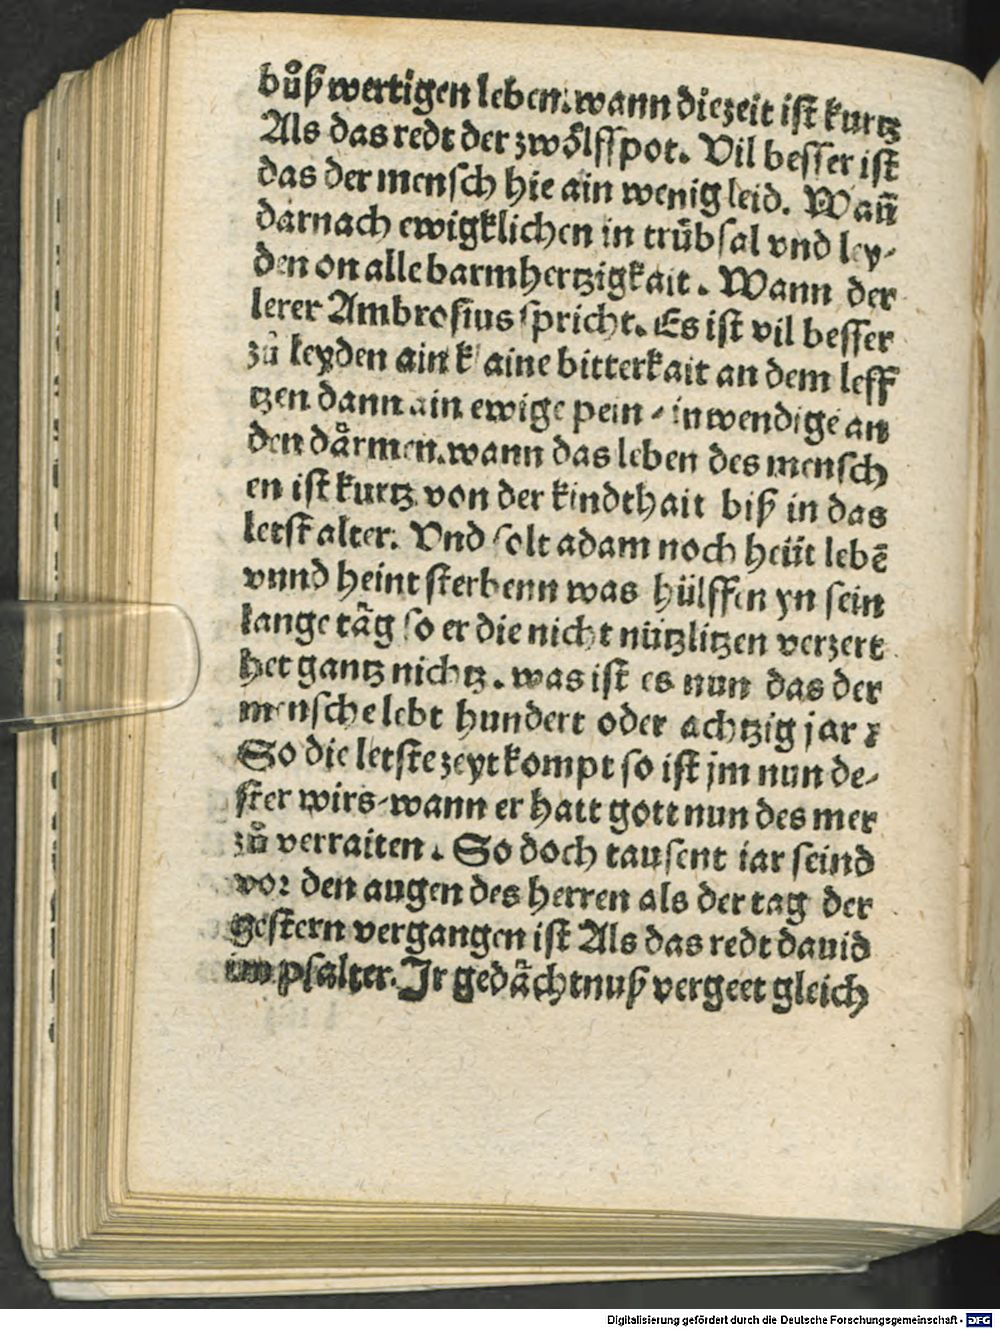 bůß wertigen leben. wann die zeit ist kurtz
Als das redt der zwölffpot. Vil besser ist
das der mensch hie ain wenig leid. Wañ
darnach ewigklichen in trübsal vnd ley-
den on alle barmhertzigkait. Wann der
lerer Ambrosius spricht. Es ist vil besser
zů leyden ain klaine bitterkait an dem leff
tzen dann ain ewige pein - inwendige an
den dårmen. wann das leben des mensch
en ist kurtz von der kindthait biß in das
letst alter. Vnd solt adam noch heüt lebē
vnnd heint sterbenn was hülffen yn sein
lange tåg so er die nicht nützlitzen verzert
het gantz nichtz. was ist es nun das der
mensche lebt hundert oder achtzig jar ꝛ
So die letste zeyt kompt so ist jm nun de-
ster wirs-wann er hatt gott nun des mer
zů verraiten. So doch tausent iar seind
vor den augen des herren als der tag der
gestern vergangen ist Als das redt dauid
im psalter. Jr gedåchtnuß vergeet gleich
Digitalisierung gefördert durch die Deutsche Forschungsgemeinschaft - DFG